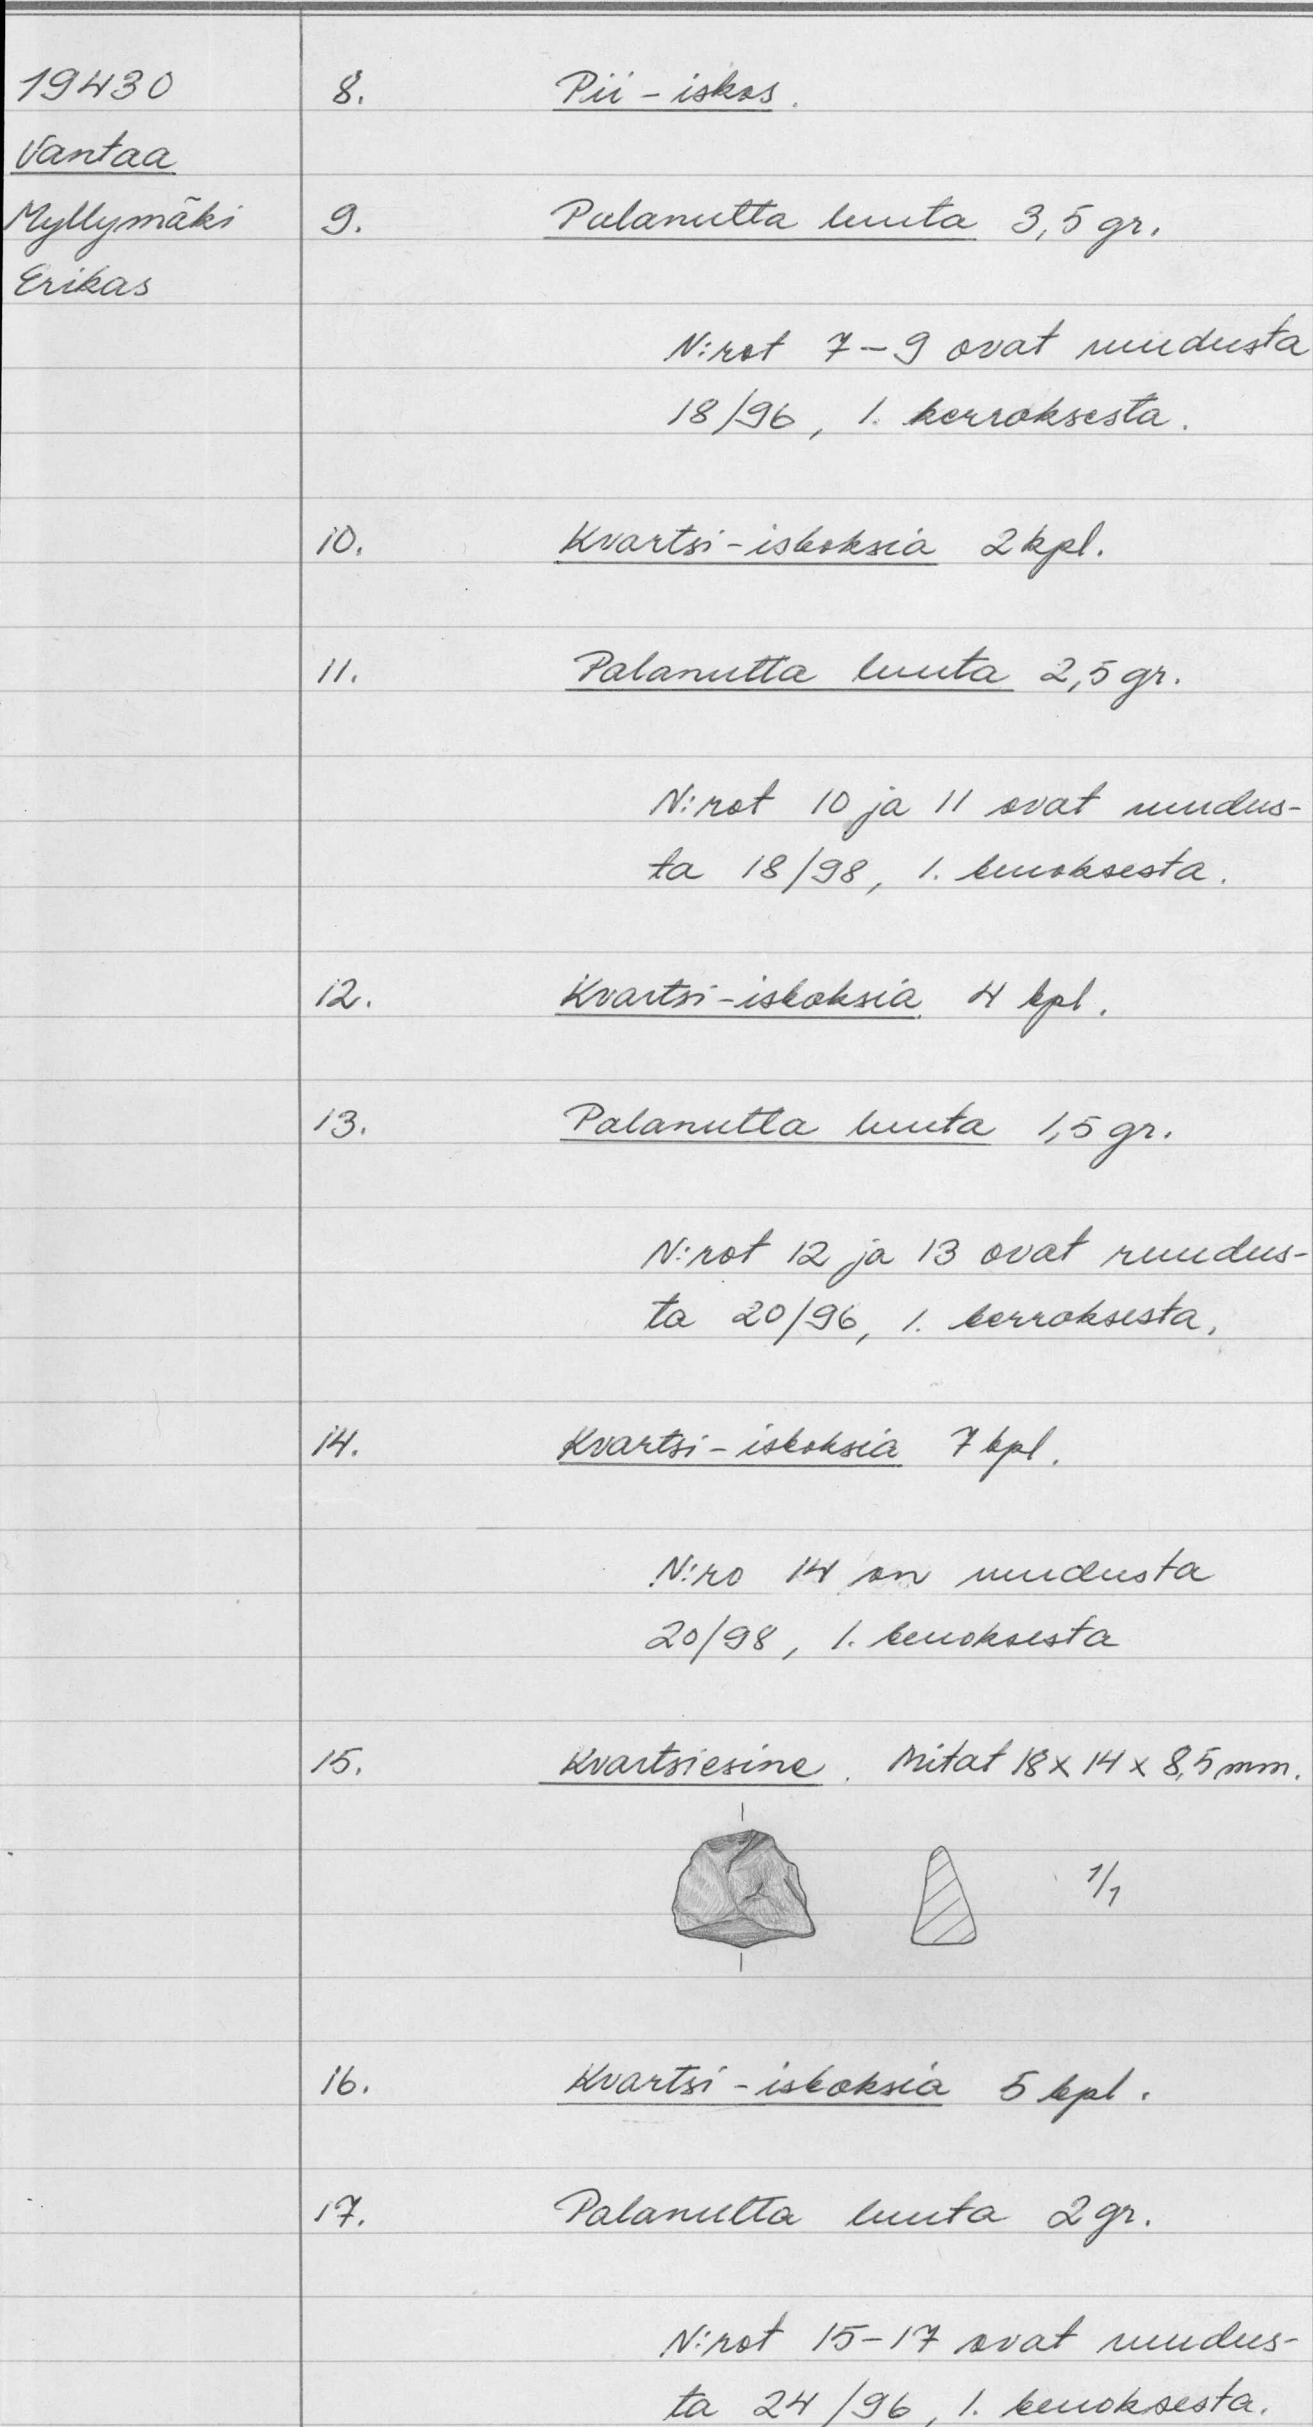 19430 8. Pii-iskos.
Vantaa
Myllymäki 9. Palanutta luuta 3,5 gr.
Erikas
N:rot 7-9 ovat ruudusta
18/96, 1. kerroksesta.
10. Kvartsi-iskoksia 2 kpl.
11. Palanutta luuta 2,5 gr.
N:rot 10 ja 11 ovat ruudus-
ta 18/98, 1. kerroksesta.
12. Kvartsi-iskoksia. 4 kpl.
13. Palanutta luuta 1,5 gr.
N:rot 12 ja 13 ovat ruudus-
ta 20/96, 1. kerroksesta.
14. Kvartsi-iskoksia 7 kpl.
N:ro 14 on ruudusta
20/98, 1. kerroksesta
15. Kvartsiesine. Mitat 18 x 14 x 8,5 mm.
1/1
16. Kvartsi-iskoksia 5 kpl.
17. Palanutta luuta 2 gr.
N:rot 15-17 ovat ruudus-
ta 24/96, 1. kerroksesta.